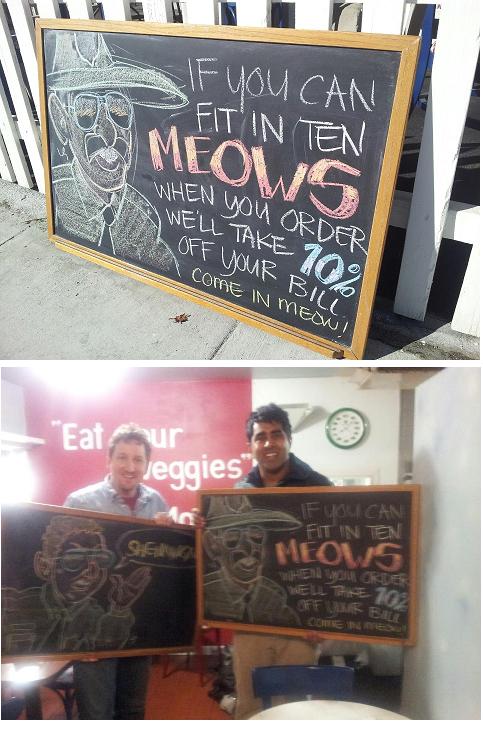 IF YOU CAN
FIT IN TEN
MEOWS
WHEN YOU ORDER
WE'LL TAKE 10%
OFF YOUR BILL
COME IN MEOW!
"Eat our
eggies"
IF YOU CAN
FIT IN TEN
MEOWS
WHEN YOU ORDER
WE'LL TAKE 10%
OFF YOUR BILL
COME IN MEOW!